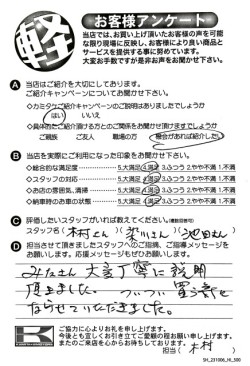 軽
お客様アンケート
当店では、お買い上げ頂いたお客様の声を可能
な限り現場に反映し、お客様により良い商品と
サービスを提供する事に努めています。
大変お手数ですが是非お声をお聞かせ下さい。
A 当店はご紹介を大切にしております。
ご紹介キャンペーンについてお聞かせ下さい。
◇カミタケご紹介キャンペーンのご説明はありましたでしょうか
はい いいえ
◇具体的にご紹介頂ける方とのご関係をお聞かせ頂けますでしょうか
ご親族 ご友人 職場の方 機会があれば紹介したい
B 当店を実際にご利用になった印象をお聞かせ下さい。
◇総合的な満足度 5.大満足 4.満足 3.ふつう 2.やや不満 1.不満
◇スタッフの対応 5.大満足 4.満足 3.ふつう 2.やや不満 1.不満
◇お店の雰囲気、清掃 5.大満足 4.満足 3.ふつう 2.やや不満 1.不満
◇納車時のお車の状態 5.大満足 4.満足 3.ふつう 2.やや不満 1.不満
C 評価したいスタッフがいれば教えてください。(複数回答可)
スタッフ名( 木村さん )( さん )( 池田さん )
D 担当させて頂きましたスタッフへのご指摘、ご指導メッセージを
お願いします。応援メッセージもぜひお願いします。
みなさん 大変丁寧に説明
頂きました。 ついつい 買う気と
ならせていただきました。
ご協力に心よりお礼を申し上げます。
今後とも宜しくお引き立てご愛顧の程お願い申し上げます。
またのご来店を心からお待ちしております。
担当( 木村 )
SH_231006_HI_500